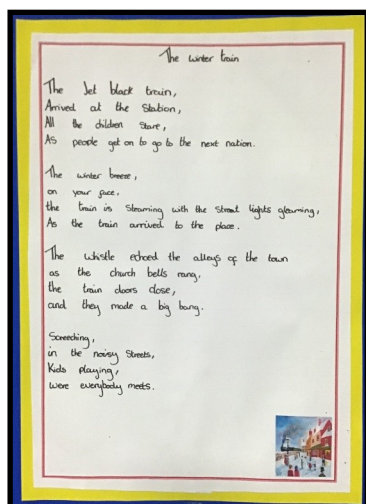 The winter train
The Jet black train,
Arrived at the Station,
All the children Stare,
As people get on to go to the next nation.
The winter breeze,
on your face,
the train is Steaming with the Street lights gleaming,
As the train arrived to the place.
The whistle echoed the alleys of the town
as the church bells rang,
the train doors close,
and they made a big bang.
Screeching,
in the noisy Streets,
Kids playing,
were everybody meets.